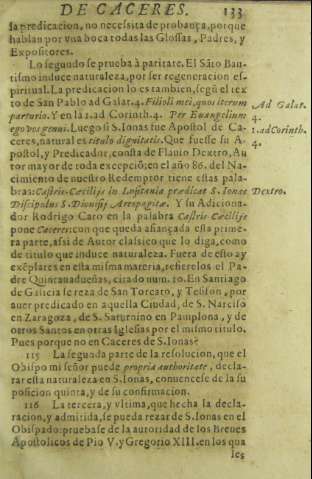 DE CACERES. 133
sa predicacion, no necesita de probança, porque
hablan por vna boca todas las Glossas, Padres, y
Expositores.
Lo segundo se prueba à paritate. El Sãto Bau-
tismo induce naturaleza, por ser regeneracion es-
piritual. La predicacion lo es tambien, segũ el tex
to de San Pablo ad Galat. 4. Filioli mei, quos iterum
parturio. Y en la 1. ad Corinth. 4. Per Euangelium
ego vos genui. Luego si S. Ionas fue Apostol de Ca-
ceres, natural es titulo dignitatis. Que fuesse su A-
postol, y Predicador, consta de Flauio Dextro, Au
tor mayor de toda excepciõ en el año 86. del Na-
cimiento de nuestro Redemptor tiene estas pala-
bras: Castris Cæcilijs in Lusitania prædicat S. Ionas
Discipulus S. Dionysij Areopagitæ. Y su Adiciona-
dor Rodrigo Caro en la palabra Castris Cæcilijs
pone Caceres: con que queda afiançada esta prime-
ra parte, assi de Autor clasico que lo diga, como
de titulo que induce naturaleza. Fuera de esto ay
exẽplares en esta misma materia, refierelos el Pa-
dre Quintanadueñas, citado num. 10. En Santiago
de Galicia se reza de San Torcato, y Tesifon, por
auer predicado en aquella Ciudad, de S. Narciso
en Zaragoza, de S. Saturnino en Pamplona, y de
otros Santos en otras Iglesias por el mismo titulo.
Pues porque no en Caceres de S. Ionas?
115 La segunda parte de la resolucion, que el
Obispo mi señor puede propria authoritate, decla-
rar esta naturaleza en S. Ionas, conuencese de la su
posicion quinta, y de su confirmacion.
116 La tercera, y vltima, que hecha la decla-
racion, y admitida, se pueda rezar de S. Ionas en el
Obispado: pruebase de la autoridad de los Breues
Apostolicos de Pio V. y Gregorio XIII. en los qua
les
Ad Galat.
4.
1. ad Corinth.
4.
Dextro.